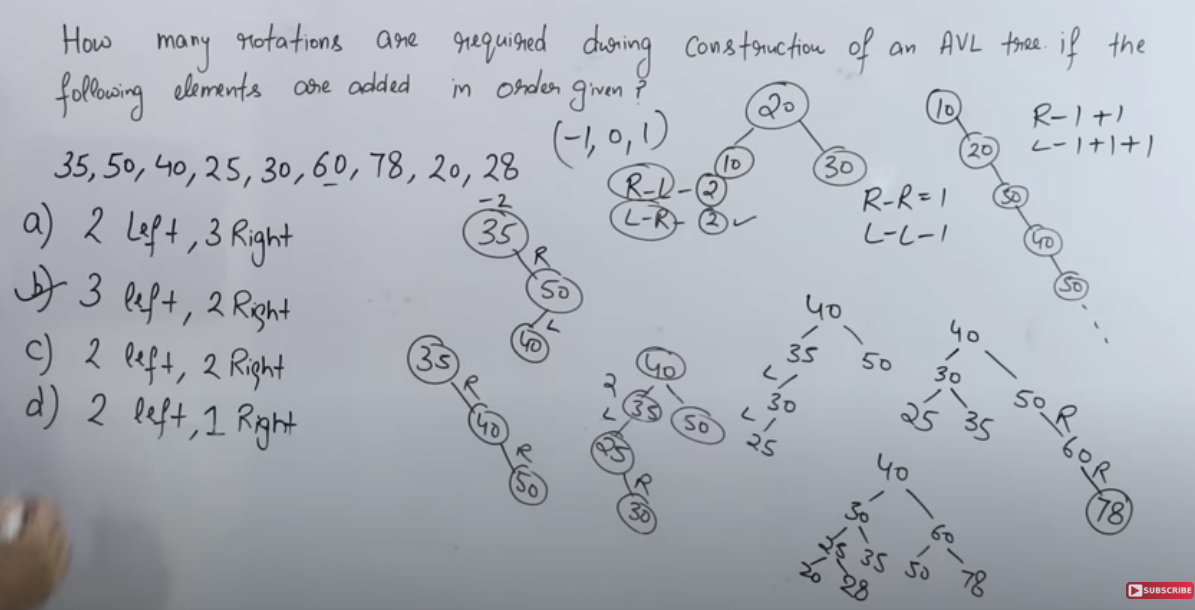 How many rotations are required during construction of an AVL tree if the
following elements are added in order given?
35, 50, 40, 25, 30, 60, 78, 20, 28
(-1, 0, 1)
a) 2 Left, 3 Right
b) 3 left, 2 Right
c) 2 left, 2 Right
d) 2 left, 1 Right
20
10 30
R-L-2
L-R-2 ✓
R-R=1
L-L-1
10
20
30
40
50
R-1+1
L-1+1+1
-2
35
R
50
L
40
35
R
40
R
50
40
2
L 35 50
25
R
30
40
35 50
L
30
L
25
40
30 50
25 35 R
60
R
78
40
30 60
25 35 50 78
20 28
SUBSCRIBE